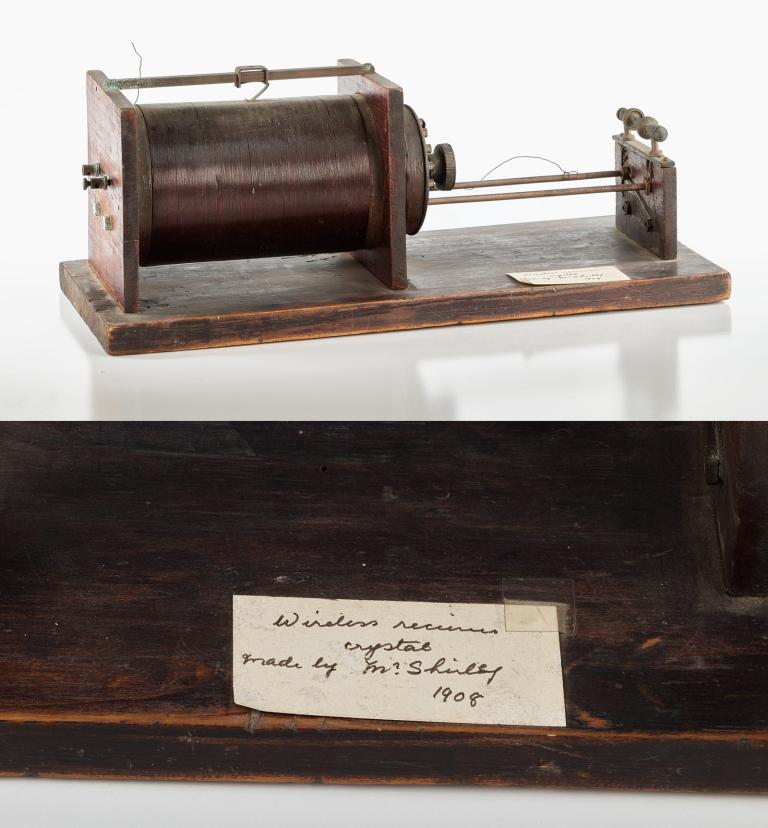 Wireless reciever
crystal
made by Mr Shirley
1908